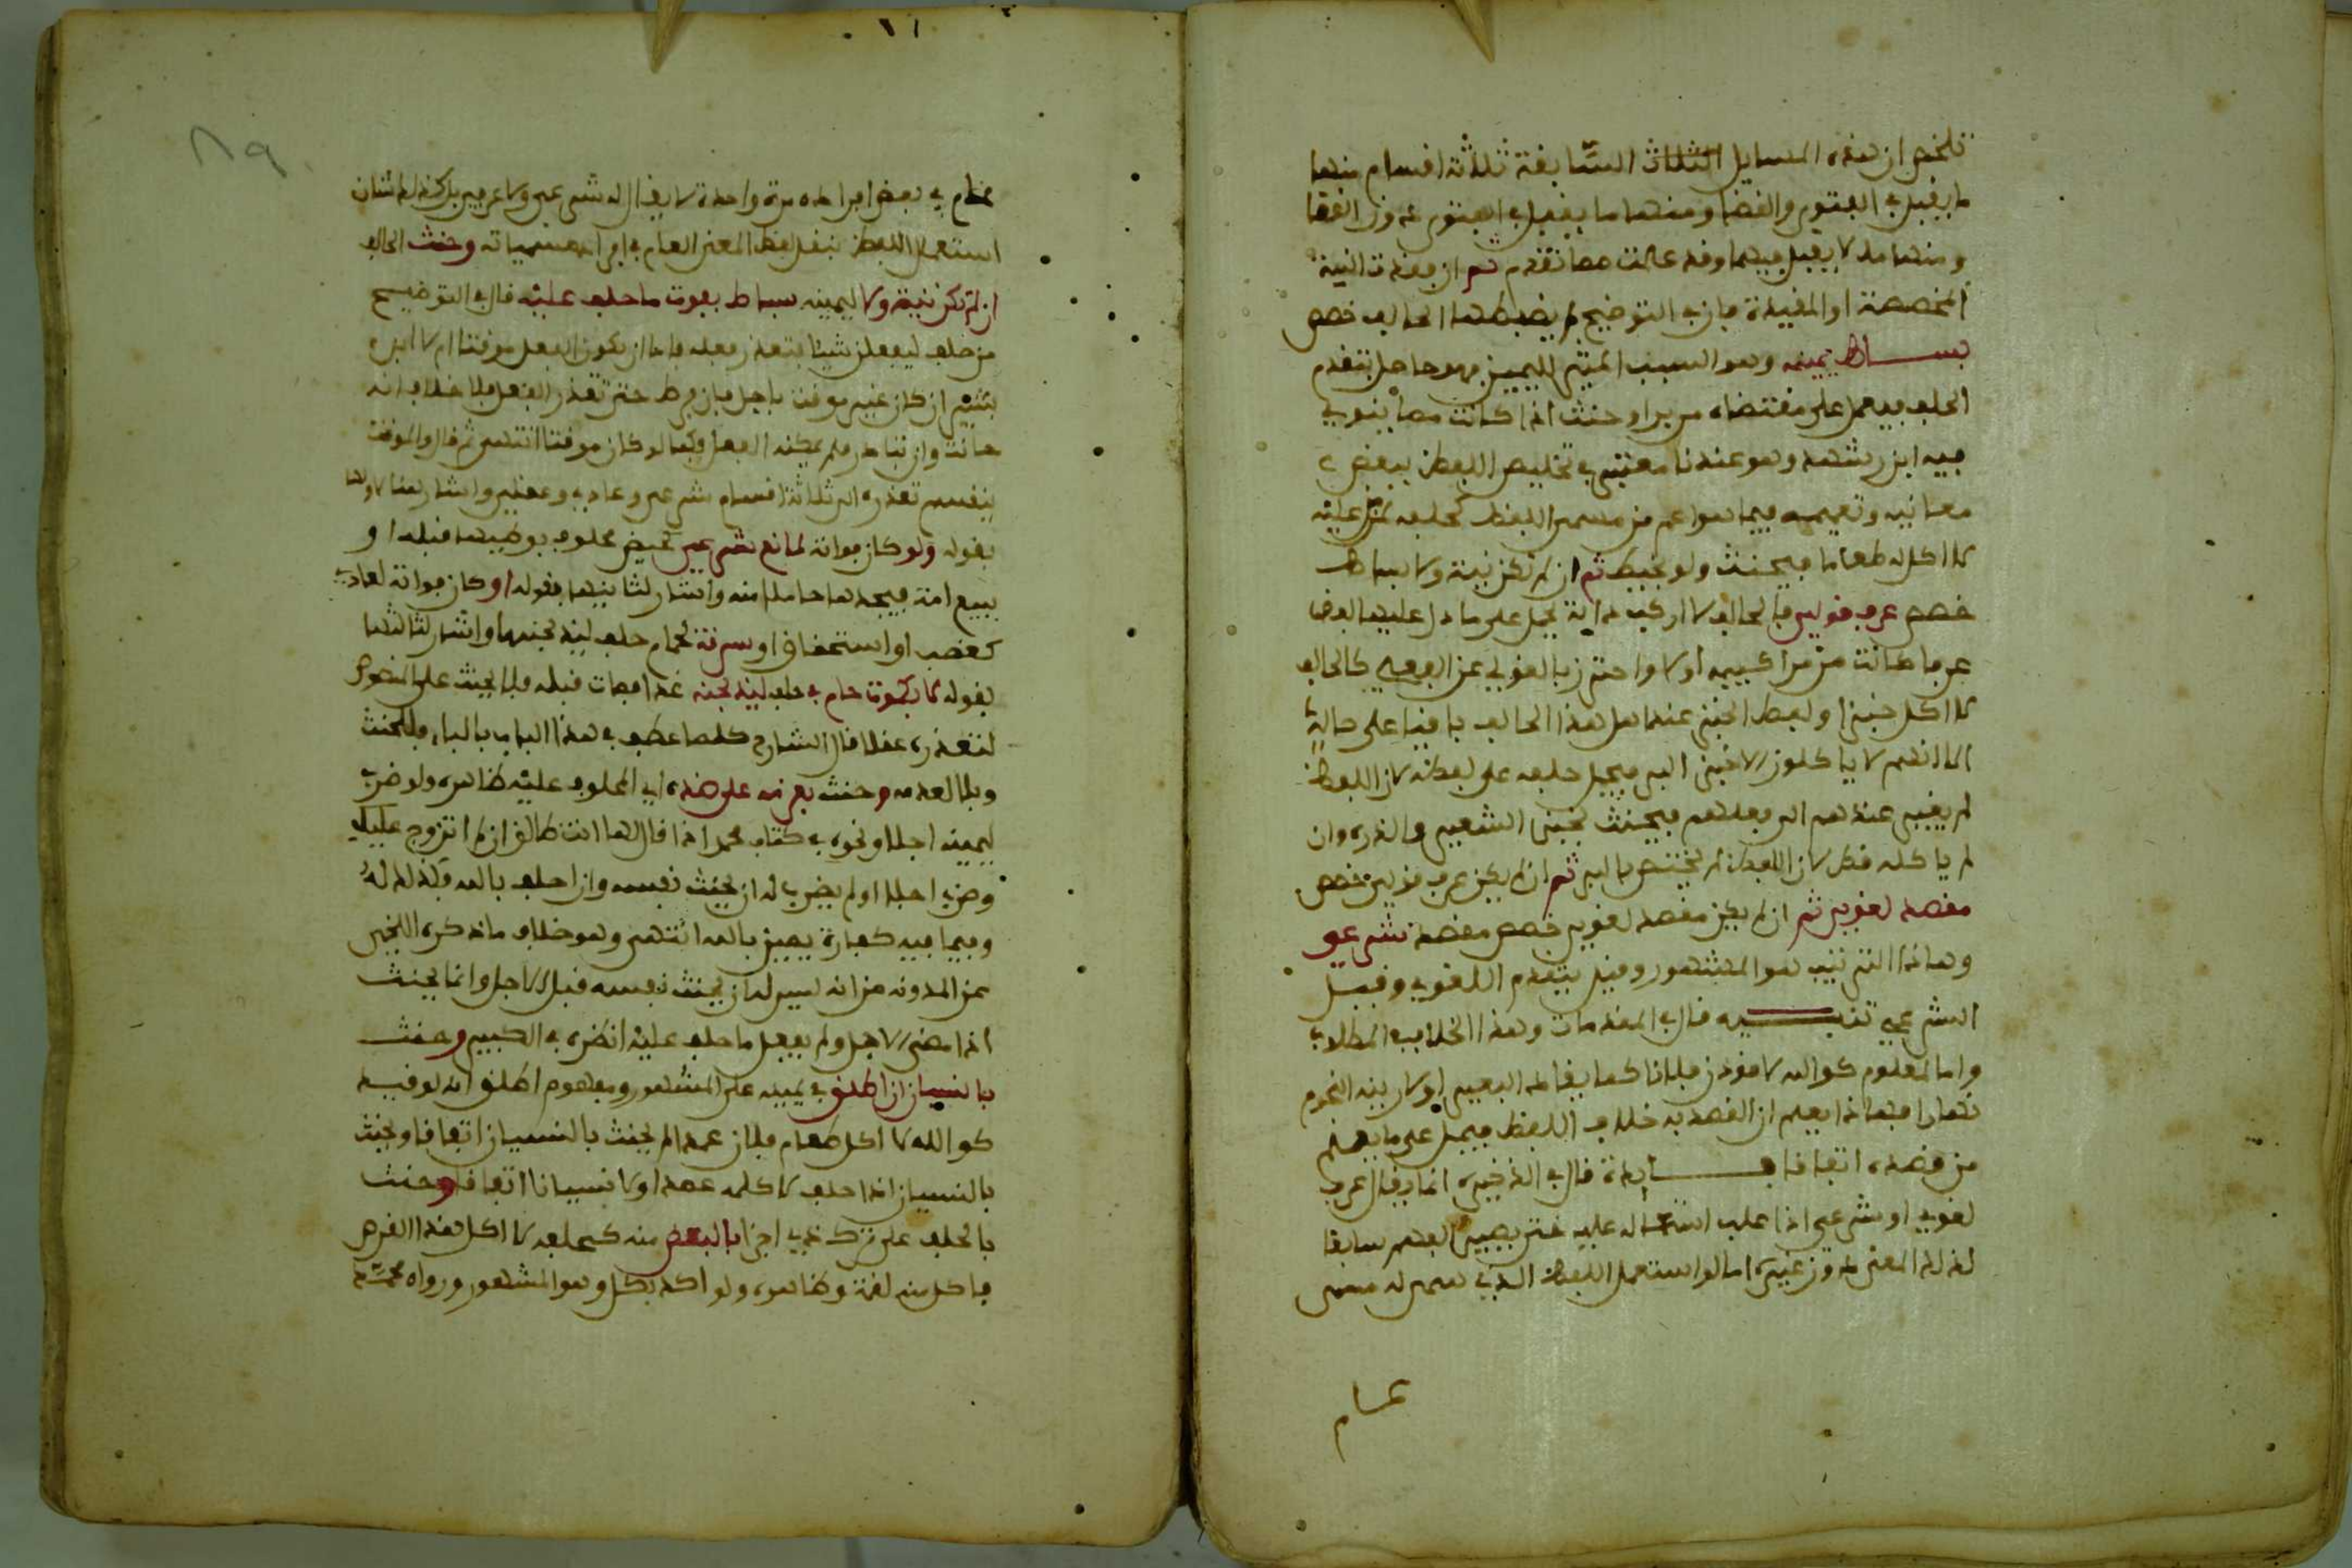 تلخص ان هذه المسايل الثلاث السابقة ثلاثة اقسام منها
ما يقبل في الفتوى والقضا ومنها ما يقبل في الفتوى دون القضا
ومنها ما لا يقبل فيهما وقد علمت مما تقدم ثم ان فقدت النية
المخصصة او المقيدة قال في التوضيح او يضبطها الحالف خصص
بساط يمينه وهو السبب المثير لليمين فهو حامل يتقدم
الحلف فيعمل على مقتضاه من بر او حنث اذا كانت مما ينوي
فيه ابن رشد وهو عندنا معتبر في تخليص اللفظ ببعض
معانيه وتعميمه فيما هو اعم من مسمى اللفظ كحلفه لمن عليه
لا اكل له طعاما فيحنث ولو بخيط ثم ان لم تكن نية ولا بساط
خصص عرف قولي فالحالف لا اركب دابة يحمل على ما دل عليها لفظا
عرفا كانت من مراكبهم او لا واحترز بالقولي عن الفعلي كالحالف
لا اكل خبزا ولفظ الخبز عند اهل هذا الحالف باقيا على حاله
الا انهم لا ياكلون الا خبز البر فيحمل حلفه على لفظه لان اللفظ
لم يغير عندهم الى فعلهم فيحنث بخبز الشعير والذره وان
لم ياكله قط لان اللفظ لم يختص بالبر ثم ان لم يكن عرف قولي خصص
مقصد لغوي ثم ان لم يكن مقصد لغوي خصص مقصد شرعي
وهاذا الترتيب هو المشهور وقيل يتقدم اللغوي وقيل
الشرعي تنبيه قال في المقدمات وهذا الخلاف في المظنون
واما المعلوم كوالله لاقودن فلانا كما يقاد البعير او لارينه النجوم
نهارا فهاذا يعلم ان القصد به خلاف اللفظ فيحمل على ما يعلم
من قصده اتفاقا فايدة قال في الذخيرة انما يقال عرف
لغوي او شرعي اذا غلب استعماله عليه حتى يصير الفهم سابقا
لذلك المعنى دون غيره اما لو استعمل اللفظ الذي سمي له مسمى
عام
عام في بعض افراده مرة واحدة لا يقال له شرعي ولا عرفي بل كذلك شان
استعمال اللفظ بنقل لفظ المعنى العام في افراد مسمياته وحنث الحالف
ان لم تكن نية ولا ليمينه بساط بفوت ما حلف عليه قال في التوضيح
من حلف ليفعلن شيئا فتعذر فعله فاما ان يكون الفعل موقتا ام لا ابن
بشير ان كان غير موقت باجل فان فرط حتى تعذر الفعل فلا خلاف انه
حانث وان بادر فلم يمكنه الفعل فكما لو كان موقتا انتهى ثم قال والموقت
ينقسم تعذره الى ثلاثة اقسام شرعي وعادي وعقلي واشار هنا لاولها
بقوله ولو كان فواته لمانع شرعي كحيض محلوف بوطيها قبله او
ببيع امة فيجدها حاملا منه واشار لثانيها بقوله او كان فواته لعادي
كغصب او استحقاق او سرقة لحمام حلف ليذبحنها واشار لثالثها
بقوله لا بكموت حمام في حلفه ليذبحنه غدا فمات قبله فلا يحنث على المنصوص
لتعذره عقلا قال الشارح كلما عطف في هذا الباب بالباء فللحنث
وبلا لعدمه وحنث بعزمه على ضده اي المحلوف عليه ظاهره ولو ضرب
ليمينه اجلا ونحوه في كتاب محمد اذا قال لها انت طالق ان لم اتزوج عليك
وضرب اجلا او لم يضرب له ان يحنث نفسه وان حلف بالله فكذلك له
وفيما فيه كفارة يمين بالله انتهى وهو خلاف ما ذكره اللخمي
عن المدونه من انه ليس له ان يحنث نفسه قبل الاجل وانما يحنث
اذا مضى الاجل ولم يفعل ما حلف عليه انظره في الكبير وحنث
بالنسيان ان اطلق في يمينه على المشهور ومفهوم اطلق انه لو قيده
كوالله لا اكل طعام فلان عمدا لم يحنث بالنسيان اتفاقا ويحنث
بالنسيان اذا حلف لا كلمه عمدا ولا نسيانا اتفاقا وحنث
بالحلف على ترك ذي اجزا بالبعض منه كحلفه لا اكل هذا القرص
فاكل منه لقمة وظاهره ولو اكد بكل وهو المشهور ورواه محمد